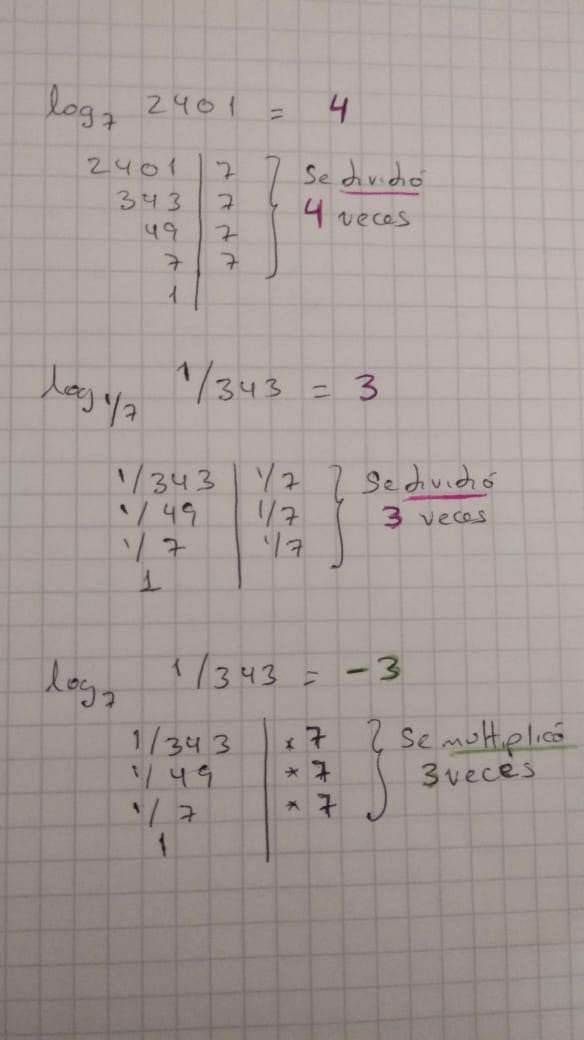 log₇ 2401 = 4
2401 | 7 } Se dividió
343 | 7 4 veces
49 | 7
7 | 7
1
log₁/₇ 1/343 = 3
1/343 | 1/7 } Se dividió
1/49 | 1/7 3 veces
1/7 | 1/7
1
log₇ 1/343 = -3
1/343 | * 7 } Se multiplicó
1/49 | * 7 3 veces
1/7 | * 7
1